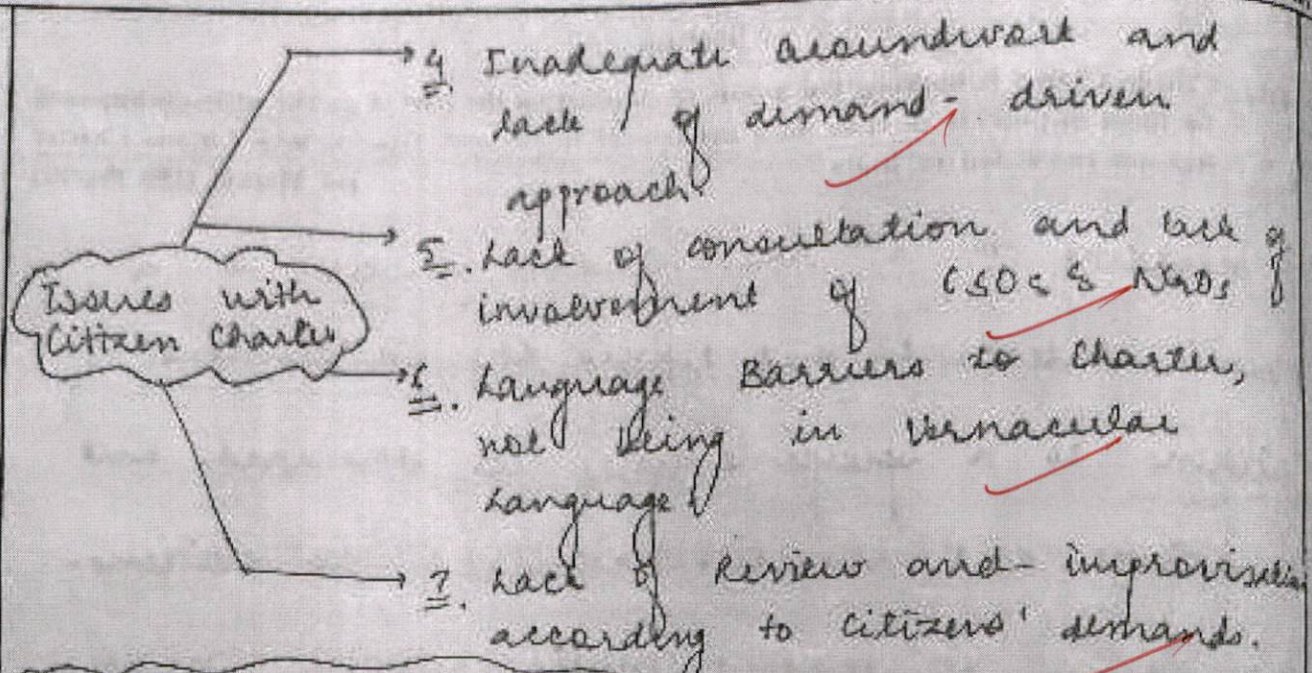 Issues with
Citizen Charter
4. Inadequate groundwork and
lack of demand-driven
approach.
5. Lack of consultation and lack of
involvement of CSOs & NGOs
6. Language Barriers to Charter,
not being in Vernacular
Language.
7. Lack of Review and improvisation
according to citizens' demands.